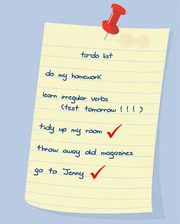 to-do list
do my homework
learn irregular verbs
(test tomorrow !!!)
tidy up my room ✓
throw away old magazines
go to Jenny ✓